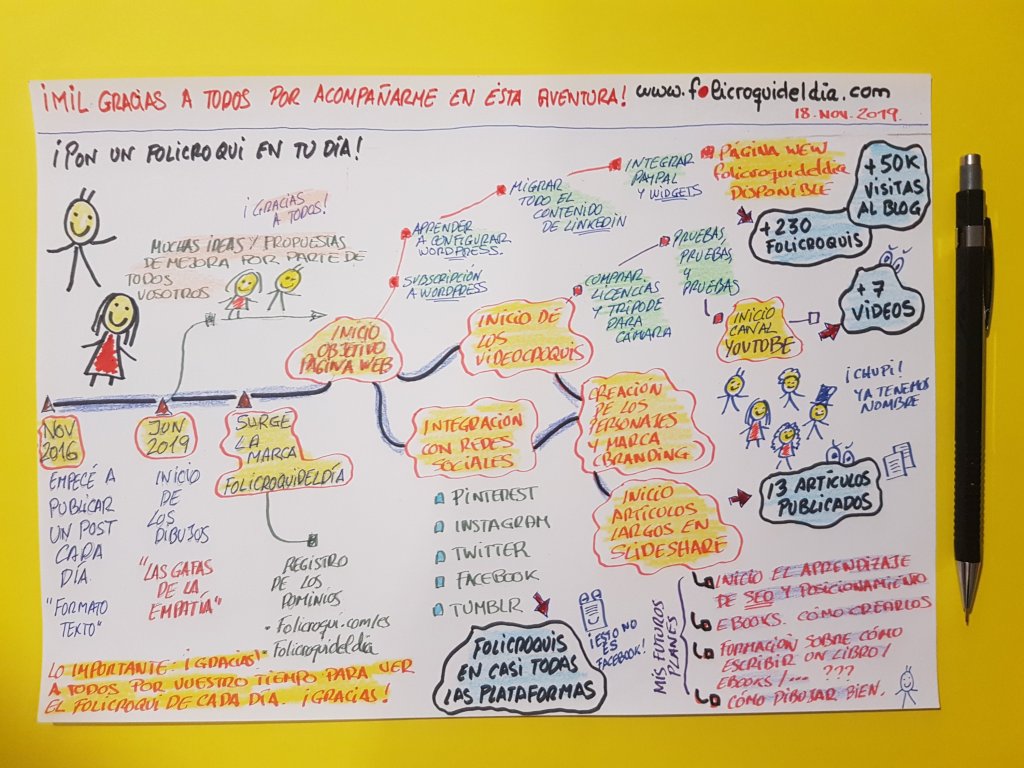 ¡MIL GRACIAS A TODOS POR ACOMPAÑARME EN ÉSTA AVENTURA! www.folicroquideldia.com
18.NOV.2019.
¡PON UN FOLICROQUI EN TU DÍA!
¡GRACIAS
A TODOS!
MUCHAS IDEAS Y PROPUESTAS
DE MEJORA POR PARTE DE
TODOS
VOSOTROS
NOV
2016
EMPECÉ A
PUBLICAR
UN POST
CADA
DÍA.
"FORMATO
TEXTO"
JUN
2019
INICIO
DE
LOS
DIBUJOS
"LAS GAFAS
DE LA
EMPATÍA"
SURGE
LA
MARCA
FOLICROQUIDELDÍA
REGISTRO
DE LOS
DOMINIOS
• Folicroqui.com/es
• Folicroquideldia
INICIO
OBJETIVO
PÁGINA WEB
SUBSCRIPCIÓN
A WORDPRESS
APRENDER
A CONFIGURAR
WORDPRESS.
MIGRAR
TODO EL
CONTENIDO
DE LINKEDIN
INTEGRAR
PAYPAL
Y WIDGETS
PÁGINA WEW
folicroquideldia
DISPONIBLE
+230
FOLICROQUIS
+50K
VISITAS
AL BLOG
INICIO DE
LOS
VIDEOCROQUIS
COMPRAR
LICENCIAS
Y TRÍPODE
PARA
CÁMARA
PRUEBAS,
PRUEBAS
Y
PRUEBAS
INICIO
CANAL
YOUTUBE
+7
VIDEOS
INTEGRACIÓN
CON REDES
SOCIALES
PINTEREST
INSTAGRAM
TWITTER
FACEBOOK
TUMBLR
FOLICROQUIS
EN CASI TODAS
LAS PLATAFORMAS
¡ESTO NO
ES
FACEBOOK!
CREACIÓN
DE LOS
PERSONAJES
Y MARCA
(BRANDING)
¡CHUPI!
YA TENEMOS
NOMBRE
INICIO
ARTÍCULOS
LARGOS EN
SLIDESHARE
13 ARTÍCULOS
PUBLICADOS
MIS FUTUROS
PLANES
INICIO EL APRENDIZAJE
DE SEO Y POSICIONAMIENTO
EBOOKS. CÓMO CREARLOS
FORMACIÓN SOBRE CÓMO
ESCRIBIR UN LIBRO/
EBOOKS/... ???
CÓMO DIBUJAR BIEN.
LO IMPORTANTE: ¡GRACIAS!
A TODOS POR VUESTRO TIEMPO PARA VER
EL FOLICROQUI DE CADA DÍA. ¡GRACIAS!